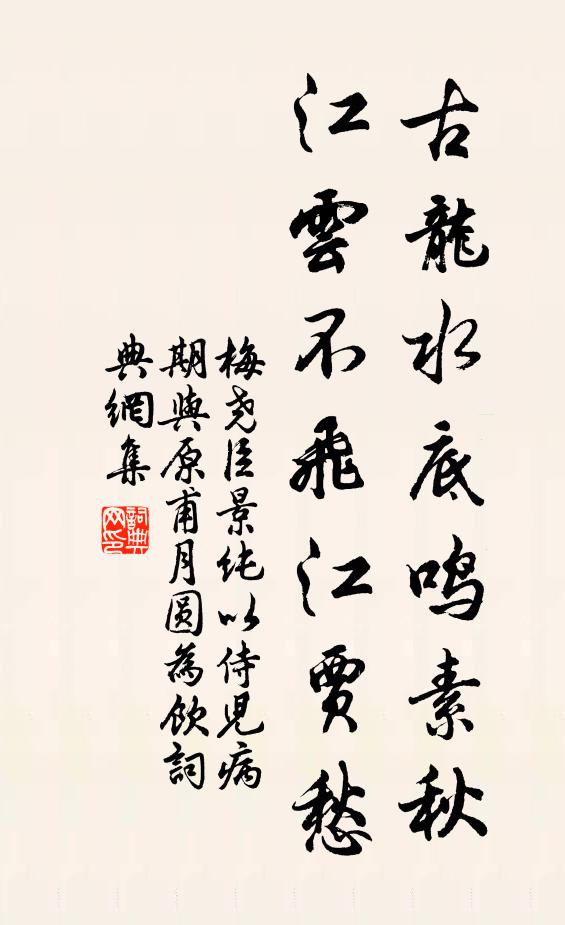 古龍水底鳴素秋
江雲不飛江賈愁
梅堯臣景純以侍児病
期與原甫月圓為飲詞
典網集
詞典
网印